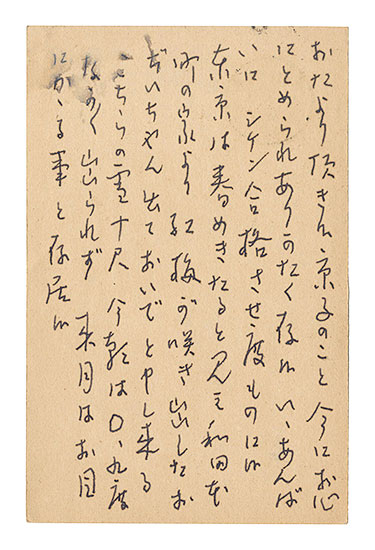 おたより頂き候 京子のこと 今にお心
にとめられありがたく存候 いゝあんば
いにシケン合格させ度ものに候
東京は春めきたると見え 和田本
町の家より 紅梅が咲き出したお
ぢいちやん出ておいでと申し来る
こちらの雪十尺 今朝は〇、九度
なかなか出られず 来月はお目
にかゝる事と存居候